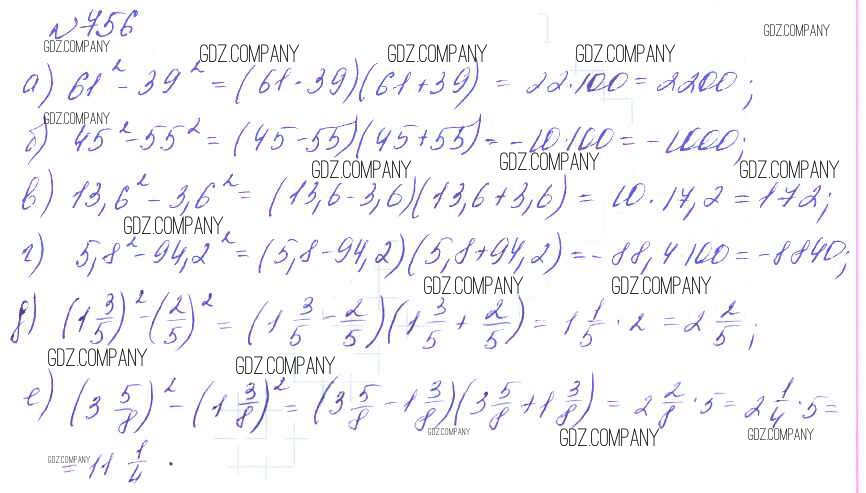 № 756
GDZ.COMPANY
GDZ.COMPANY
GDZ.COMPANY
GDZ.COMPANY
GDZ.COMPANY
а) 61² - 39² = (61 - 39)(61 + 39) = 22·100 = 2200;
GDZ.COMPANY
б) 45² - 55² = (45 - 55)(45 + 55) = -10·100 = -1000;
GDZ.COMPANY
GDZ.COMPANY
GDZ.COMPANY
в) 13,6² - 3,6² = (13,6 - 3,6)(13,6 + 3,6) = 10·17,2 = 172;
GDZ.COMPANY
г) 5,8² - 94,2² = (5,8 - 94,2)(5,8 + 94,2) = -88,4 100 = -8840;
GDZ.COMPANY
GDZ.COMPANY
д) (1 3/5)² - (2/5)² = (1 3/5 - 2/5)(1 3/5 + 2/5) = 1 1/5 · 2 = 2 2/5;
GDZ.COMPANY
GDZ.COMPANY
е) (3 5/8)² - (1 3/8)² = (3 5/8 - 1 3/8)(3 5/8 + 1 3/8) = 2 2/8 · 5 = 2 1/4 · 5 =
GDZ.COMPANY
GDZ.COMPANY
GDZ.COMPANY
GDZ.COMPANY
= 11 1/4 .